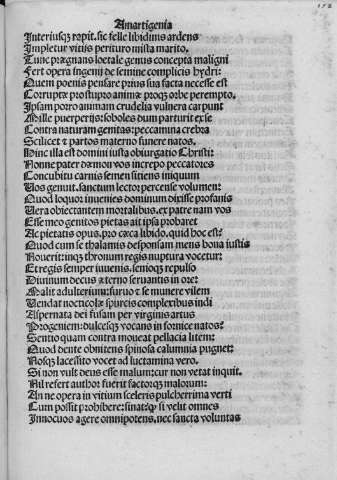 Amartigenia
Interiusq; rapit. sic felle libidinis ardens
Impletur vitijs perituro mista marito.
Tunc prægnans loetale genus concepta maligni
Fert opera ingenij de semine complicis hydri:
Quem poenis pensare prius sua facta necesse est
Corruptæ prostupro animæ proq; orbe perempto.
Ipsam porro animam crudelia vulnera carpunt
Mille puerperijs: soboles dum parturit ex se
Contra naturam genitas: peccamina crebra
Scilicet & partos materno funere natos.
Hinc illa est domini iusta obiurgatio Christi:
Nonne pater dæmon vos increpo peccatores
Concubitu carnis semen sitiens iniquum
Vos genuit. sanctum lector percense volumen:
Quod loquor inuenies dominum dixisse profanis
Vera obiectantem mortalibus. ex patre nam vos
Esse meo genitos pietas ait ipsa probaret
Ac pietatis opus. pro cæca libido. quid hoc est?
Quod cum se thalamis desponsam mens bona iustis
Nouerit: inq; thronum regis nuptura vocetur:
Et regis semper iuuenis. senioq; repulso
Diuinum decus æterno seruantis in ore:
Malit adulterium: furuo & se munere vilem
Vendat nocticolæ spurcis complexibus indi
Aspernata dei fusam per virginis artus
Progeniem: dulcesq; vocans in fornice natos?
Sentio quam contra moueat pellacia litem:
Quod dente obnitens spinosa calumnia pugnet:
Nosq; lacessito vocet ad luctamina vero.
Si non vult deus esse malum: cur non vetat inquit.
Nil refert author fuerit factorq; malorum:
An ne opera in vitium sceleris pulcherrima verti
Cum possit prohibere: sinat: q; si velit omnes
Innocuos agere omnipotens. nec sancta voluntas